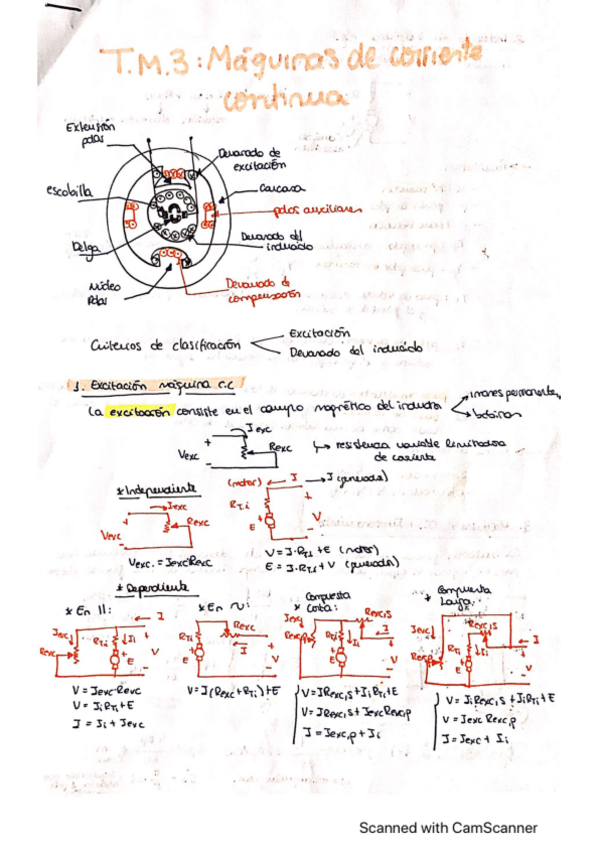 T.M.3: Máquinas de corriente
continua
Extensión
polar
Devanado de
excitación
escobilla
Carcasa
polos auxiliares
Devanado del
inducido
Delga
Núcleo
Polar
Devanado de
compensación
Criterios de clasificación
Excitación
Devanado del inducido
1. Excitación máquina c.c
La excitación consiste en el campo magnético del inductor
imanes permanentes
bobinas
Jexc
+
Vexc
-
Rexc
resistencia variable limitadora
de corriente
* Independiente
Jexc
+
Rexc
Vexc
-
Vexc. = Jexc·Rexc
(motor)
I
J (generador)
RT,i
+
E
+
V
-
V = J·RT,i + E (motor)
E = J·RT,i + V (generador)
* Dependiente
* En ||:
Jexc
Rexc
RTi
Ii
I
+
E
+
V
-
V = Jexc·Rexc
V = JiRTi+E
J = Ji + Jexc
* En ~:
Rexc
RTi
I
+
E
+
V
-
V = J(Rexc+RTi)+E
* Compuesta
Corta:
Jexc
Rexc,s
Rexc,p
RTi
Ii
I
+
E
+
V
-
V = JRexc,s + JiRTi+E
V = JRexc,s + JexcRexc,p
J = Jexc,p + Ji
* Compuesta
Larga:
Jexc
Rexc,s
Rexc,p
RTi
Ii
I
+
E
+
V
-
V = JiRexc,s + JiRTi+E
V = Jexc Rexc,p
J = Jexc + Ji
Scanned with CamScanner